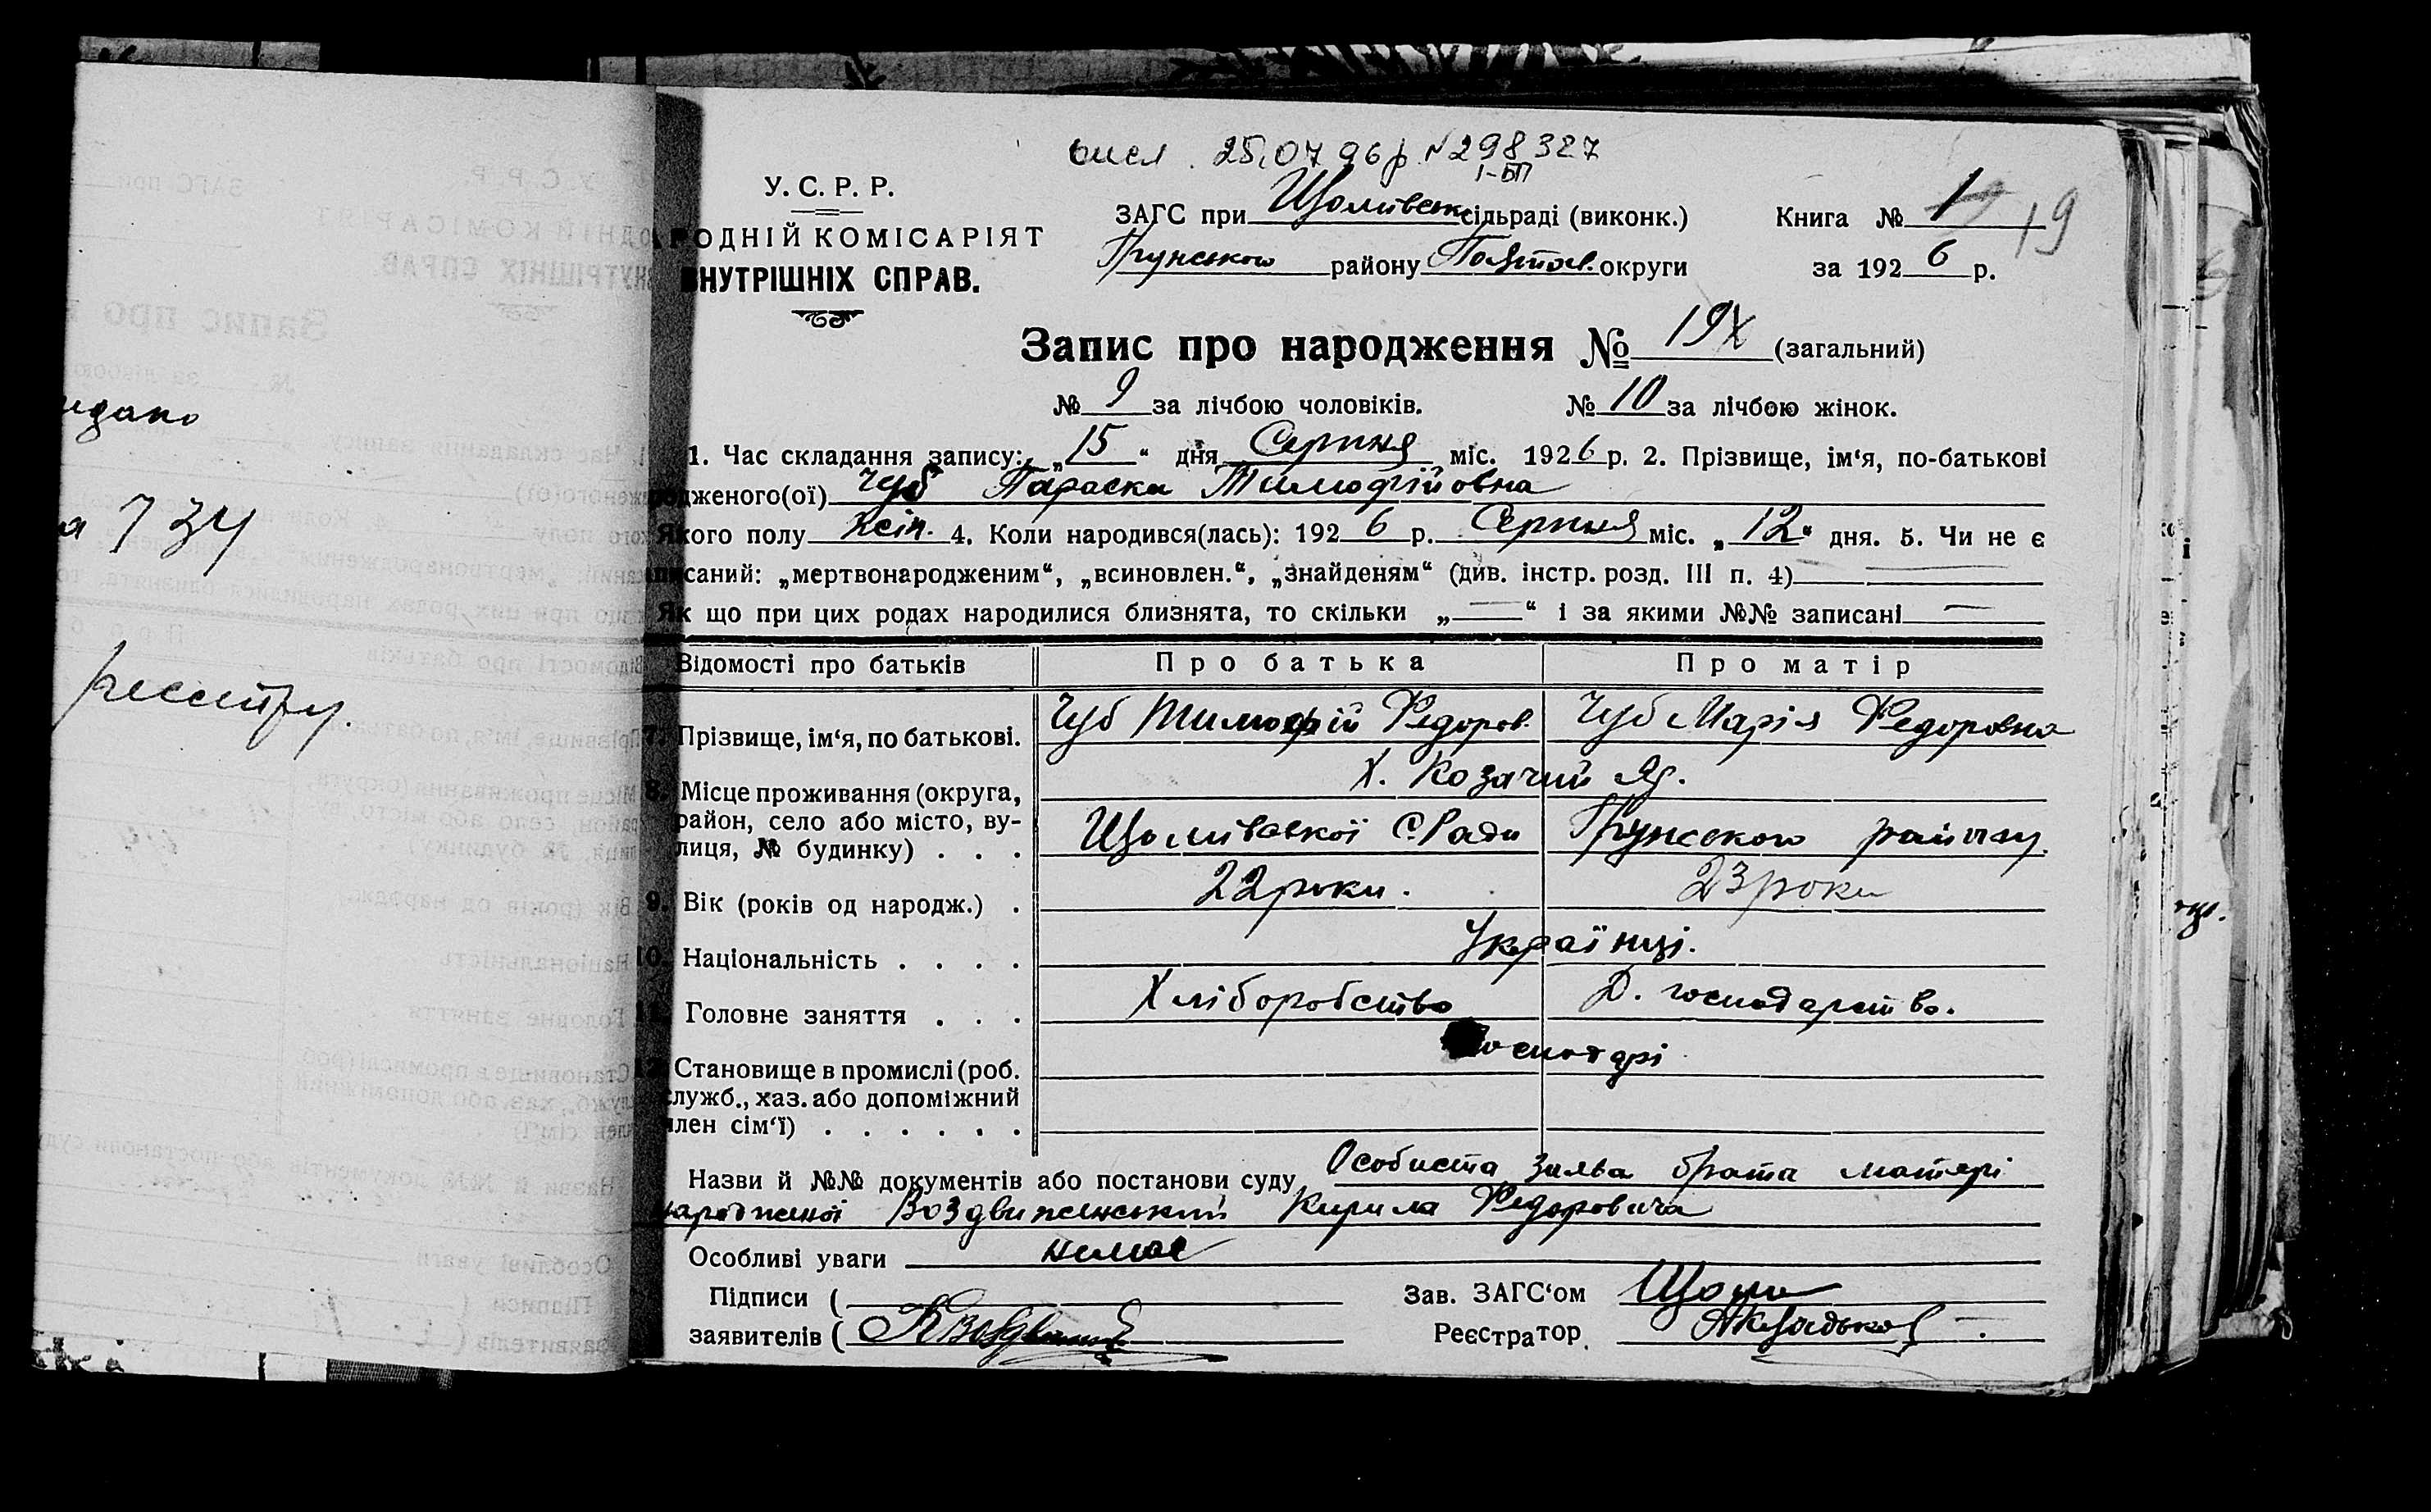 идано
а 734
реєстру.
висл. 25.07 96р. №298327
І-БП
У. С. Р. Р.
РОДНІЙ КОМІСАРІЯТ
ВНУТРІШНІХ СПРАВ.
ЗАГС при Щомівськ сільраді (виконк.)
Грунського району Полтав. округи
Книга № 1 19
за 1926 р.
Запис про народження № 19 (загальний)
№ 9 за лічбою чоловіків. № 10 за лічбою жінок.
1. Час складання запису: „15“ дня Серпня міс. 1926 р. 2. Прізвище, ім‘я, по-батькові
одженого(ої) Чуб Параска Тимофійовна
Якого полу жін. 4. Коли народився(лась): 1926 р. Серпня міс. „12“ дня. 5. Чи не є
писаний: „мертвонародженим“, „всиновлен.“, „знайденям“ (див. інстр. розд. III п. 4) —
Як що при цих родах народилися близнята, то скільки „—“ і за якими №№ записані —
Відомості про батьків Про батька Про матір
7. Прізвище, ім‘я, по батькові. Чуб Тимофій Федоров. Чуб Марія Федоровна
Х. Козачий Яр.
8. Місце проживання (округа,
район, село або місто, ву-
лиця, № будинку) . . . Щомівської С Ради Грунського району.
9. Вік (років од народж.) . 22 роки. 23 роки
10. Національність . . . . Українці.
11. Головне заняття . . . Хліборобство Д. господарство.
12. Становище в промислі (роб. господарі
служб., хаз. або допоміжний
член сім‘ї) . . . . . .
Назви й №№ документів або постанови суду Особиста заява брата матері
народженої Воздвиженський Кирила Федоровича
Особливі уваги немає
Підписи (
заявителів ( КВоздвиженс
Зав. ЗАГС‘ом
Реєстратор